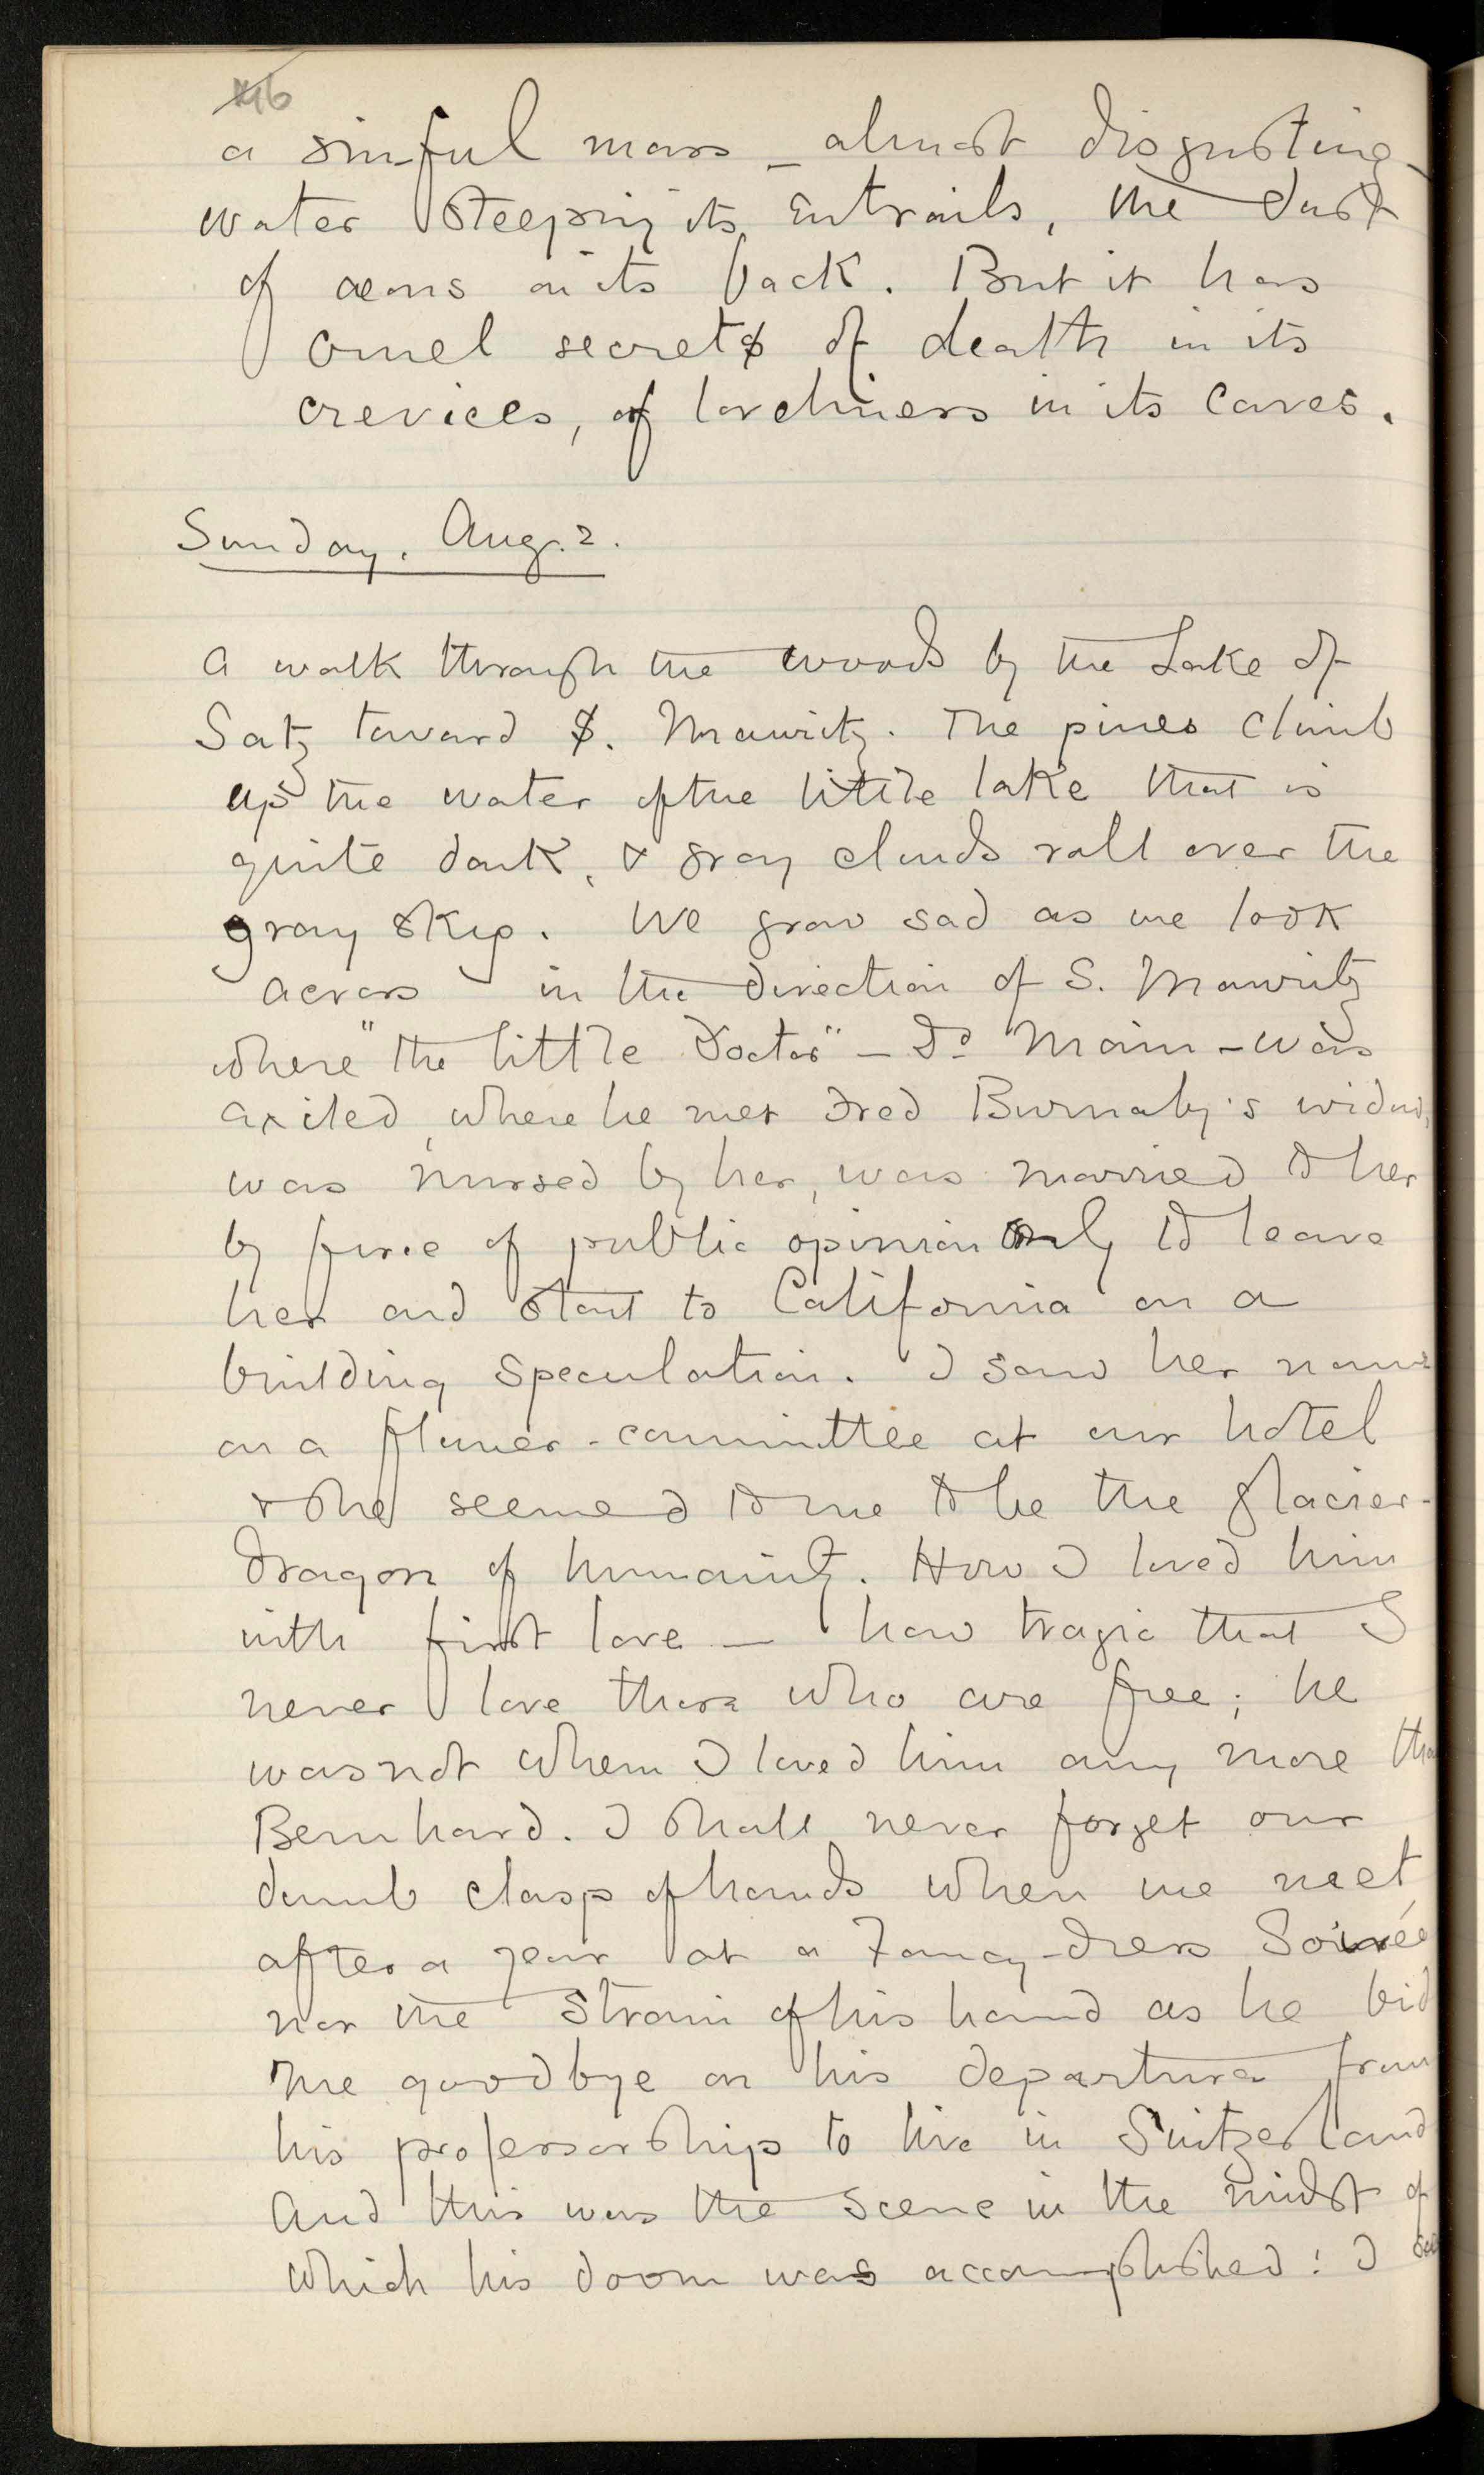 46
a sinful mass – almost disgusting –
water steeping its entrails, the dust
of aeons on its back. But it has
cruel secrets of death in its
crevices, of loveliness in its caves.
Sunday. Aug. 2.
A walk through the woods by the Lake of
Satz toward S. Mauritz. The pines climb
up the water of the little lake that is
quite dark, & gray clouds roll over the
gray sky. We grow sad as we look
across in the direction of S. Mauritz
where "the little Doctor" – Dr Main – was
exiled, where he met Fred Burnaby's widow,
was nursed by her, was married to her
by force of public opinion only to leave
her and start to California on a
building speculation. I saw her name
on a flower-committee at our hotel
& she seemed to me to be the glacier-
dragon of humanity. How I loved him
with first love – how tragic that I
never love those who are free; he
was not when I loved him any more than
Bernhard. I shall never forget our
dumb clasp of hands when we meet
after a year at a Fancy-dress Soirée
nor the strain of his hand as he bid
me goodbye on his departure from
his professorship to live in Switzerland
And this was the scene in the midst of
which his doom was accomplished! I